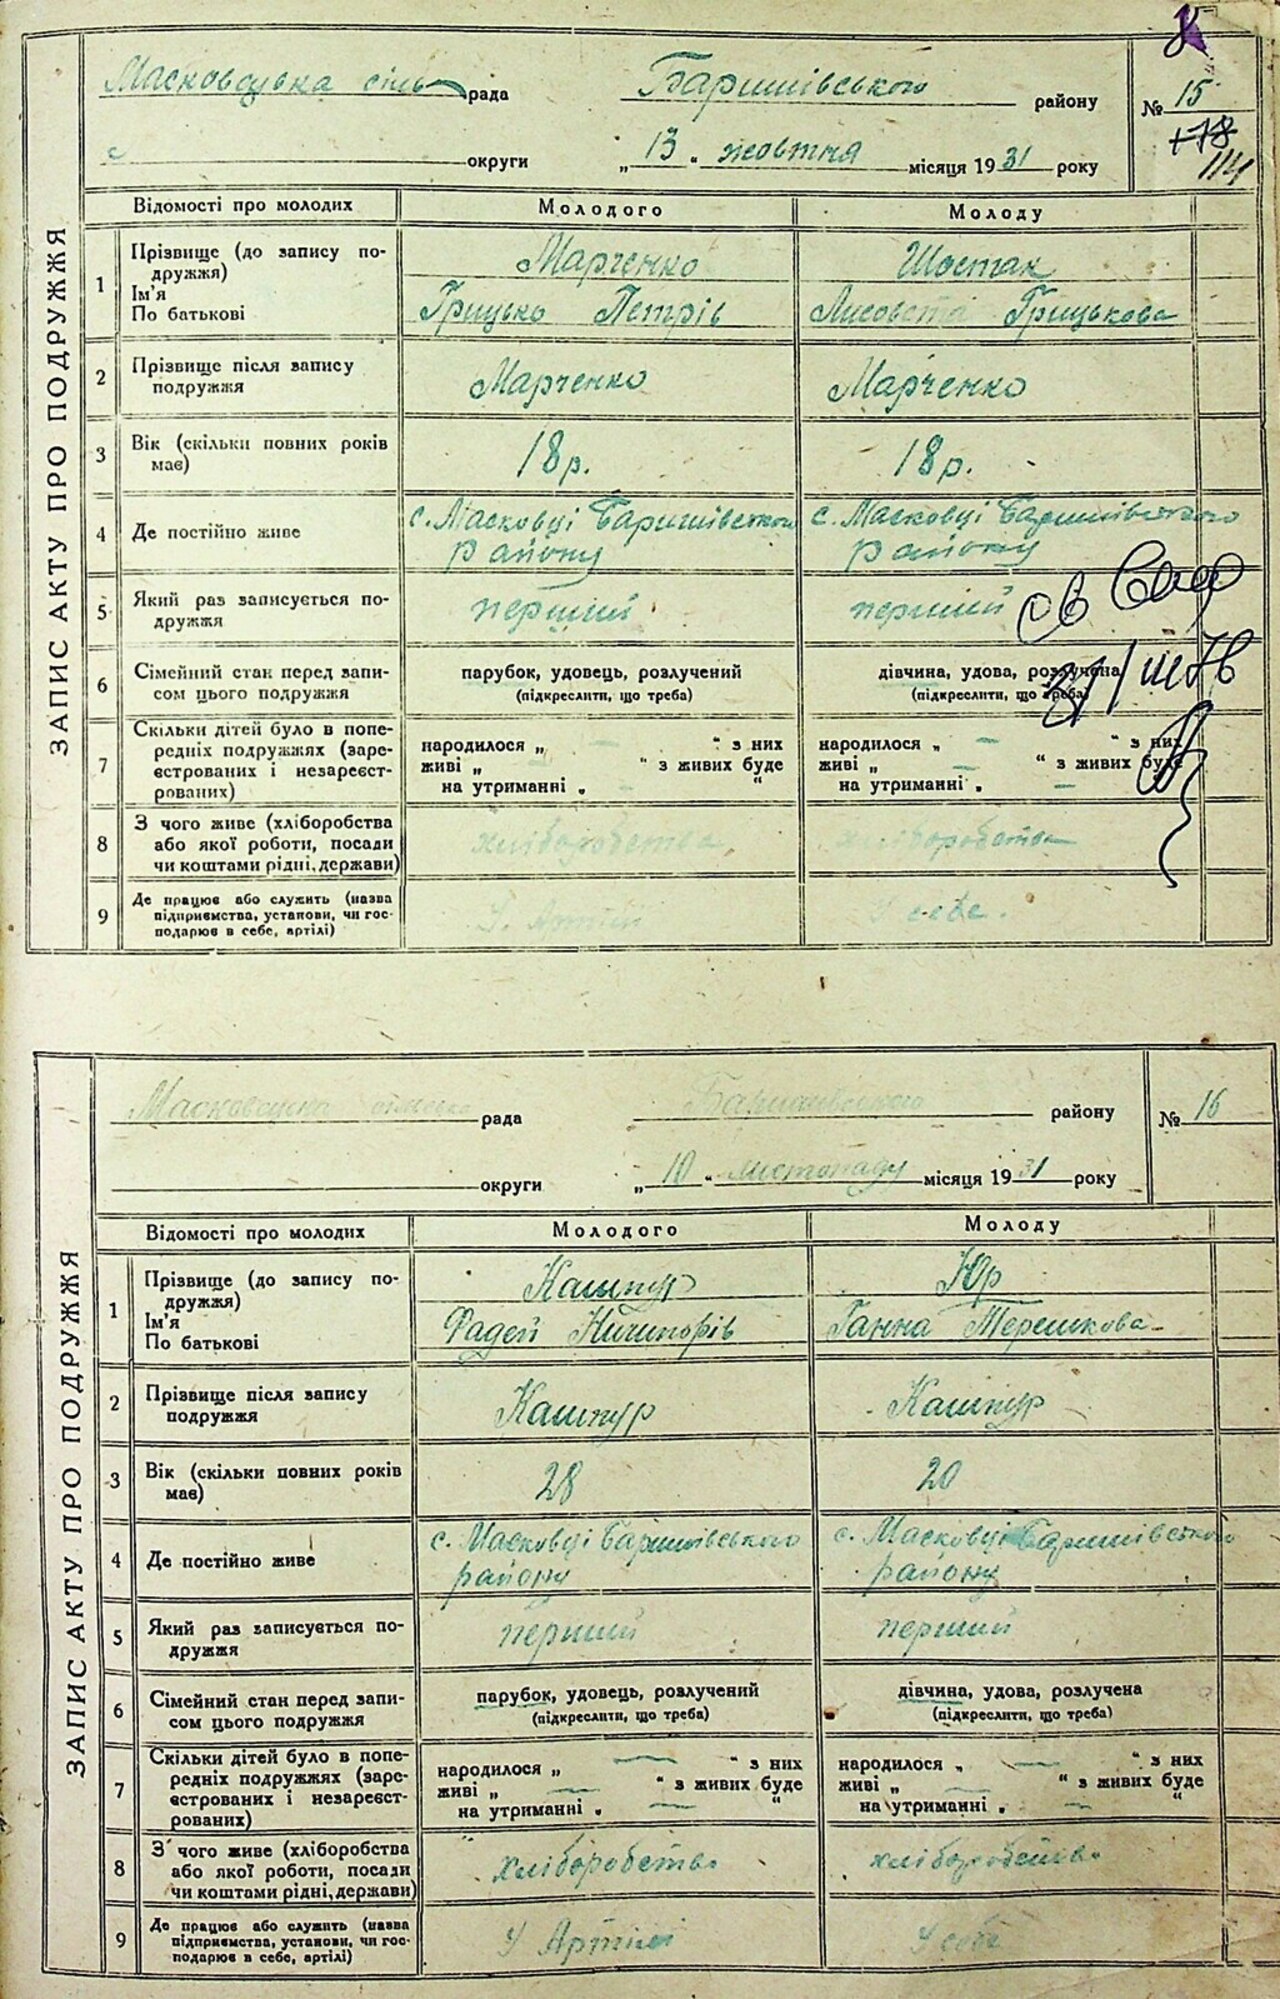 8
Масковецька сіль рада Баришівського району № 15
+78
114
округи „13“ жовтня місяця 1931 року
ЗАПИС АКТУ ПРО ПОДРУЖЖЯ
Відомості про молодих Молодого Молоду
1 Прізвище (до запису по- Марченко Шостак
дружжя)
Ім'я Грицько Петрів Лисовета Грицькова
По батькові
2 Прізвище після запису Марченко Марченко
подружжя
3 Вік (скільки повних років 18 р. 18 р.
має)
4 Де постійно живе с. Масковці Баришівського с. Масковці Баришівського
району району
5 Який раз записується по- перший перший
дружжя
6 Сімейний стан перед запи- парубок, удовець, розлучений дівчина, удова, розлучена
сом цього подружжя (підкреслити, що треба) (підкреслити, що треба)
7 Скільки дітей було в попе-
редніх подружжях (заре- народилося „ — “ з них народилося „ — “ з них
єстрованих і незареєст- живі „ — “ з живих буде живі „ — “ з живих буде
рованих) на утриманні „ — “ на утриманні „ —
8 З чого живе (хліборобства
або якої роботи, посади хліборобства хліборобства
чи коштами рідні, держави)
9 Де працює або служить (назва
підприємства, установи, чи гос- У Артілі У себе.
подарює в себе, артілі)
Масковецька сільська рада Баришівського району № 16
округи „10“ листопаду місяця 1931 року
ЗАПИС АКТУ ПРО ПОДРУЖЖЯ
Відомості про молодих Молодого Молоду
1 Прізвище (до запису по- Кашпур Юр
дружжя)
Ім'я Фадей Ничипорів Ганна Терешкова
По батькові
2 Прізвище після запису Кашпур Кашпур
подружжя
3 Вік (скільки повних років 28 20
має)
4 Де постійно живе с. Масковці Баришівського с. Масковці Баришівського
району району
5 Який раз записується по- перший перший
дружжя
6 Сімейний стан перед запи- парубок, удовець, розлучений дівчина, удова, розлучена
сом цього подружжя (підкреслити, що треба) (підкреслити, що треба)
7 Скільки дітей було в попе-
редніх подружжях (заре- народилося „ — “ з них народилося „ — “ з них
єстрованих і незареєст- живі „ — “ з живих буде живі „ — “ з живих буде
рованих) на утриманні „ — “ на утриманні „ — “
8 З чого живе (хліборобства
або якої роботи, посади хліборобство хліборобство
чи коштами рідні, держави)
9 Де працює або служить (назва
підприємства, установи, чи гос- У Артілі У себе
подарює в себе, артілі)